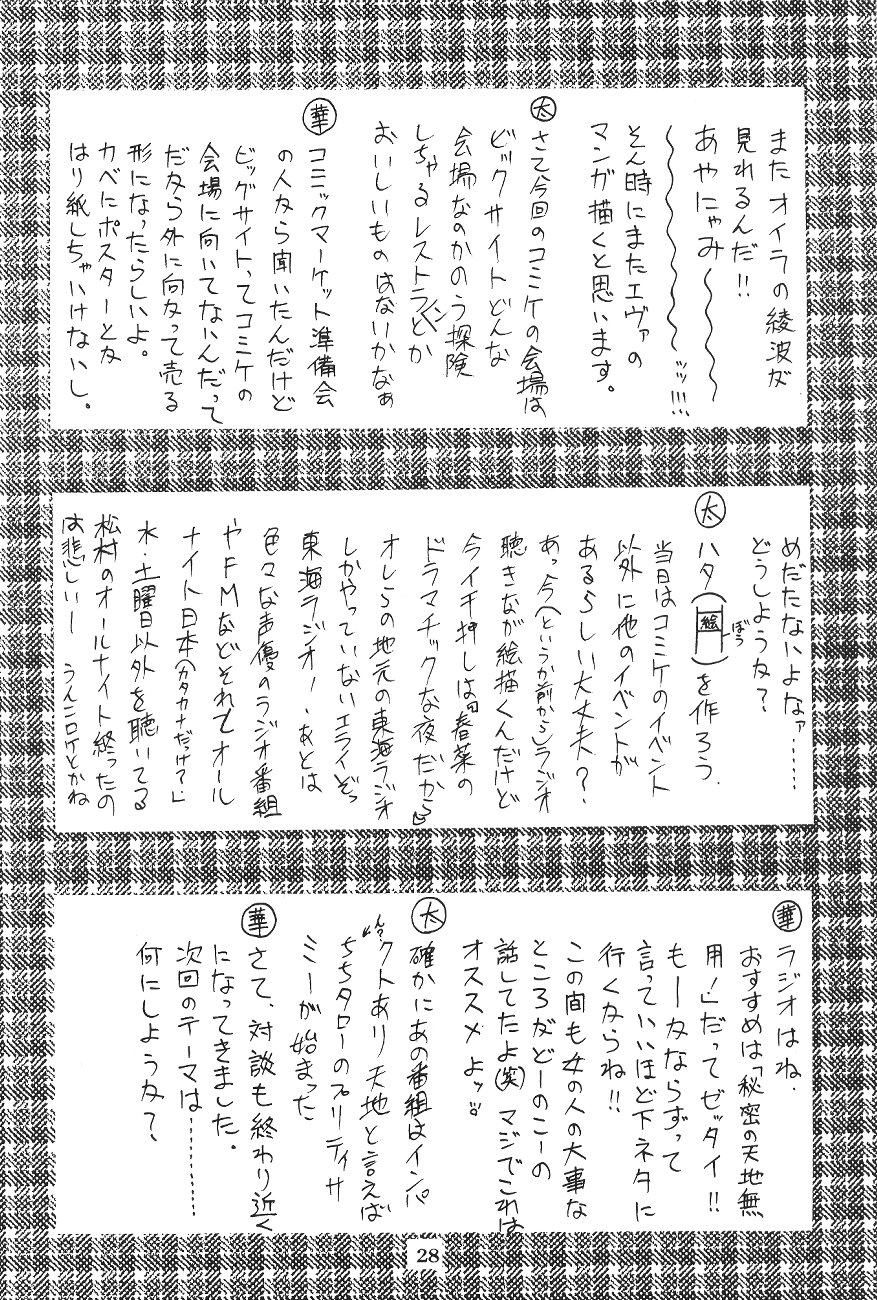 またオイラの綾波が
見れるんだ!!
あやにゃみ〜〜〜
〜〜〜〜〜〜ッッ!!!
そん時にまたエヴァの
マンガ描くと思います。
太 さて今回のコミケの会場は
ビックサイトどんな
会場なのかのう探険
しちゃるレストランとか
おいしいものはないかなぁ
華 コミックマーケット準備会
の人から聞いたんだけど
ビッグサイトってコミケの
会場に向いてないんだって
だから外に向かって売る
形になったらしいよ。
カベにポスターとか
はり紙しちゃいけないし。
めだたないよなァ……
どうしようか?
太 ハタ(絵 ぼう)を作ろう.
当日はコミケのイベント
以外に他のイベントが
あるらしい大丈夫?
あっ今(というか前から)ラジオ
聴きなが絵描くんだけど
今イチ押しは「春菜の
ドラマチックな夜だから」
オレらの地元の東海ラジオ
しかやっていないエライぞっ
東海ラジオ!、あとは
色々な声優のラジオ番組
やFMなどそれとオール
ナイト日本(カタカナだっけ?)
水・土曜日以外を聴いてる
松村のオールナイト終ったの
は悲しいー うんこロケとかね
華 ラジオはね.
おすすめは「秘密の天地無
用!」だってゼッタイ!!
もーかならずって
言っていいほど下ネタに
行くからね!!
この間も女の人の大事な
ところがどーのこーの
話してたよ(笑)マジでこれは
オススメよッ!!
太 確かにあの番組はインパ
クトあり天地と言えば
んっ?
ちちタローのプリティサ
ミーが始まった
華 さて、対談も終わり近く
になってきました。
次回のテーマは…………
何にしようか?
28